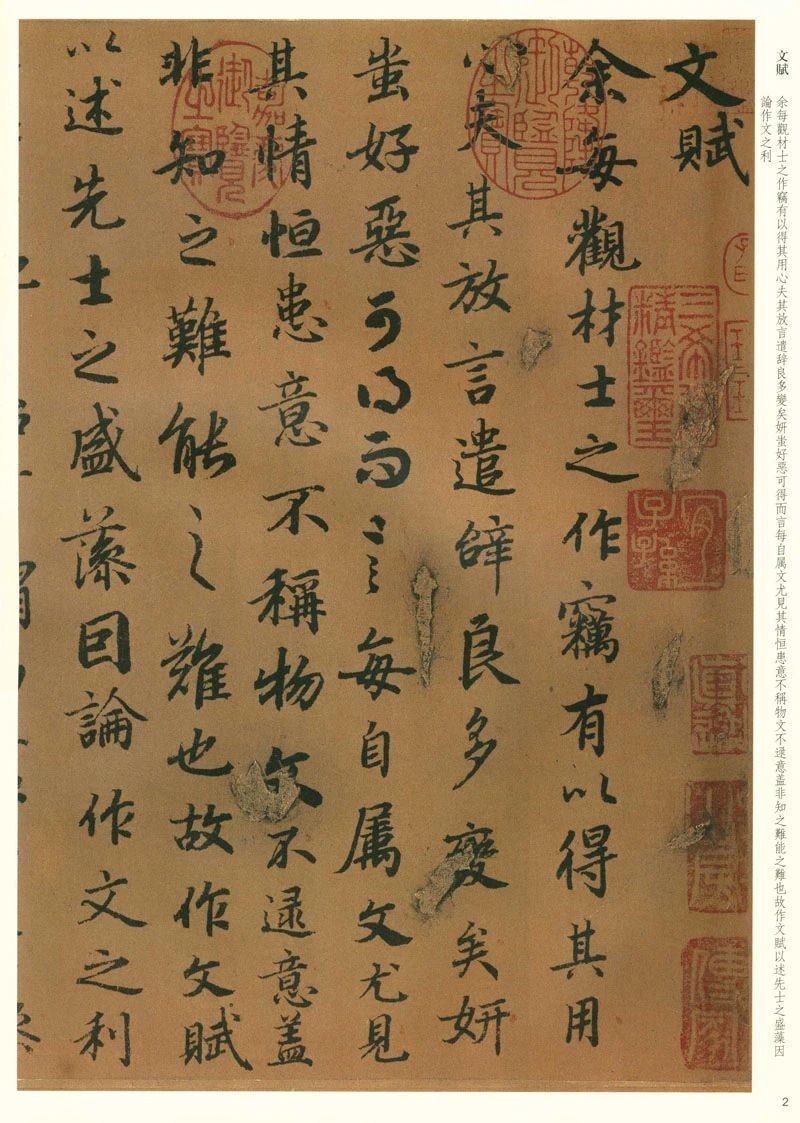 文賦　余每觀材士之作竊有以得其用心夫其放言遣辞良多變矣妍蚩好惡可得而言每自属文尤見其情恒患意不稱物文不逮意盖非知之難能之難也故作文賦以述先士之盛藻因
論作文之利
三希堂精鑑璽
宜子孫
文賦
余每觀材士之作竊有以得其用
心夫其放言遣辞良多變矣妍
乾隆御覽之寶
蚩好惡可得而言每自属文尤見
其情恒患意不稱物文不逮意盖
嘉慶御覽之寶
非知之難能之難也故作文賦
以述先士之盛藻因論作文之利
2